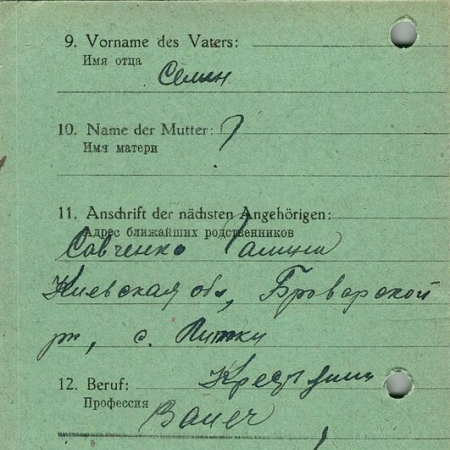 9. Vorname des Vaters:
Имя отца
Семин
10. Name der Mutter: ?
Имя матери
11. Anschrift der nächsten Angehörigen:
Адрес ближайших родственников
Савченко Галина
Киевская обл, Броварской
рн, с.
12. Beruf:
Профессия
Bauer